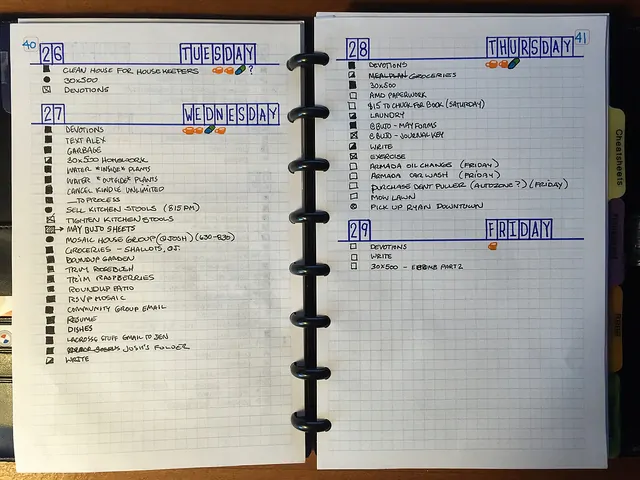 40
26 TUESDAY
CLEAN HOUSE FOR HOUSEKEEPERS ?
30X500
DEVOTIONS
27 WEDNESDAY
DEVOTIONS
TEXT ALEX
GARBAGE
30X500 HOMEWORK
WATER *INSIDE* PLANTS
WATER *OUTSIDE* PLANTS
CANCEL KINDLE UNLIMITED
TO PROCESS
SELL KITCHEN STOOLS (815PM)
TIGHTEN KITCHEN STOOLS
MAY BUJO SHEETS
MOSAIC HOUSE GROUP (@JOSH) (630-830)
GROCERIES - SHALLOTS, OJ.
ROUNDUP GARDEN
TRIM ROSEBUSH
TRIM RASPBERRIES
ROUNDUP PATIO
RSVP MOSAIC
COMMUNITY GROUP EMAIL
RESUME
DISHES
LACROSS STUFF GMAIL TO JEN
JOSH'S FOLDER
WRITE
41
28 THURSDAY
DEVOTIONS
MEALPLAN GROCERIES
30X500
AMD PAPERWORK
$15 TO CHUCK FOR BOOK (SATURDAY)
LAUNDRY
BBUJO - MAY FORMS
BBUJO - JOURNAL KEY
WRITE
EXERCISE
ARMADA OIL CHANGES (FRIDAY)
ARMADA CAR WASH (FRIDAY)
PURCHASE DENT PULLER (AUTOZONE?) (FRIDAY)
MOW LAWN
PICK UP RYAN DOWNTOWN
29 FRIDAY
DEVOTIONS
WRITE
30X500 - PART 2
Cheatsheets